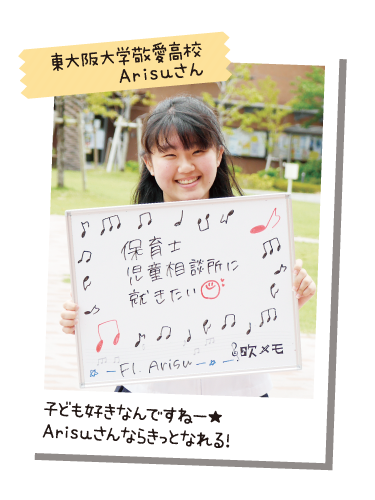 東大阪大学敬愛高校
Arisuさん
保育士
児童相談所に
就きたい
吹メモ
-Fl. Arisu-
子ども好きなんですねー★
Arisuさんならきっとなれる!